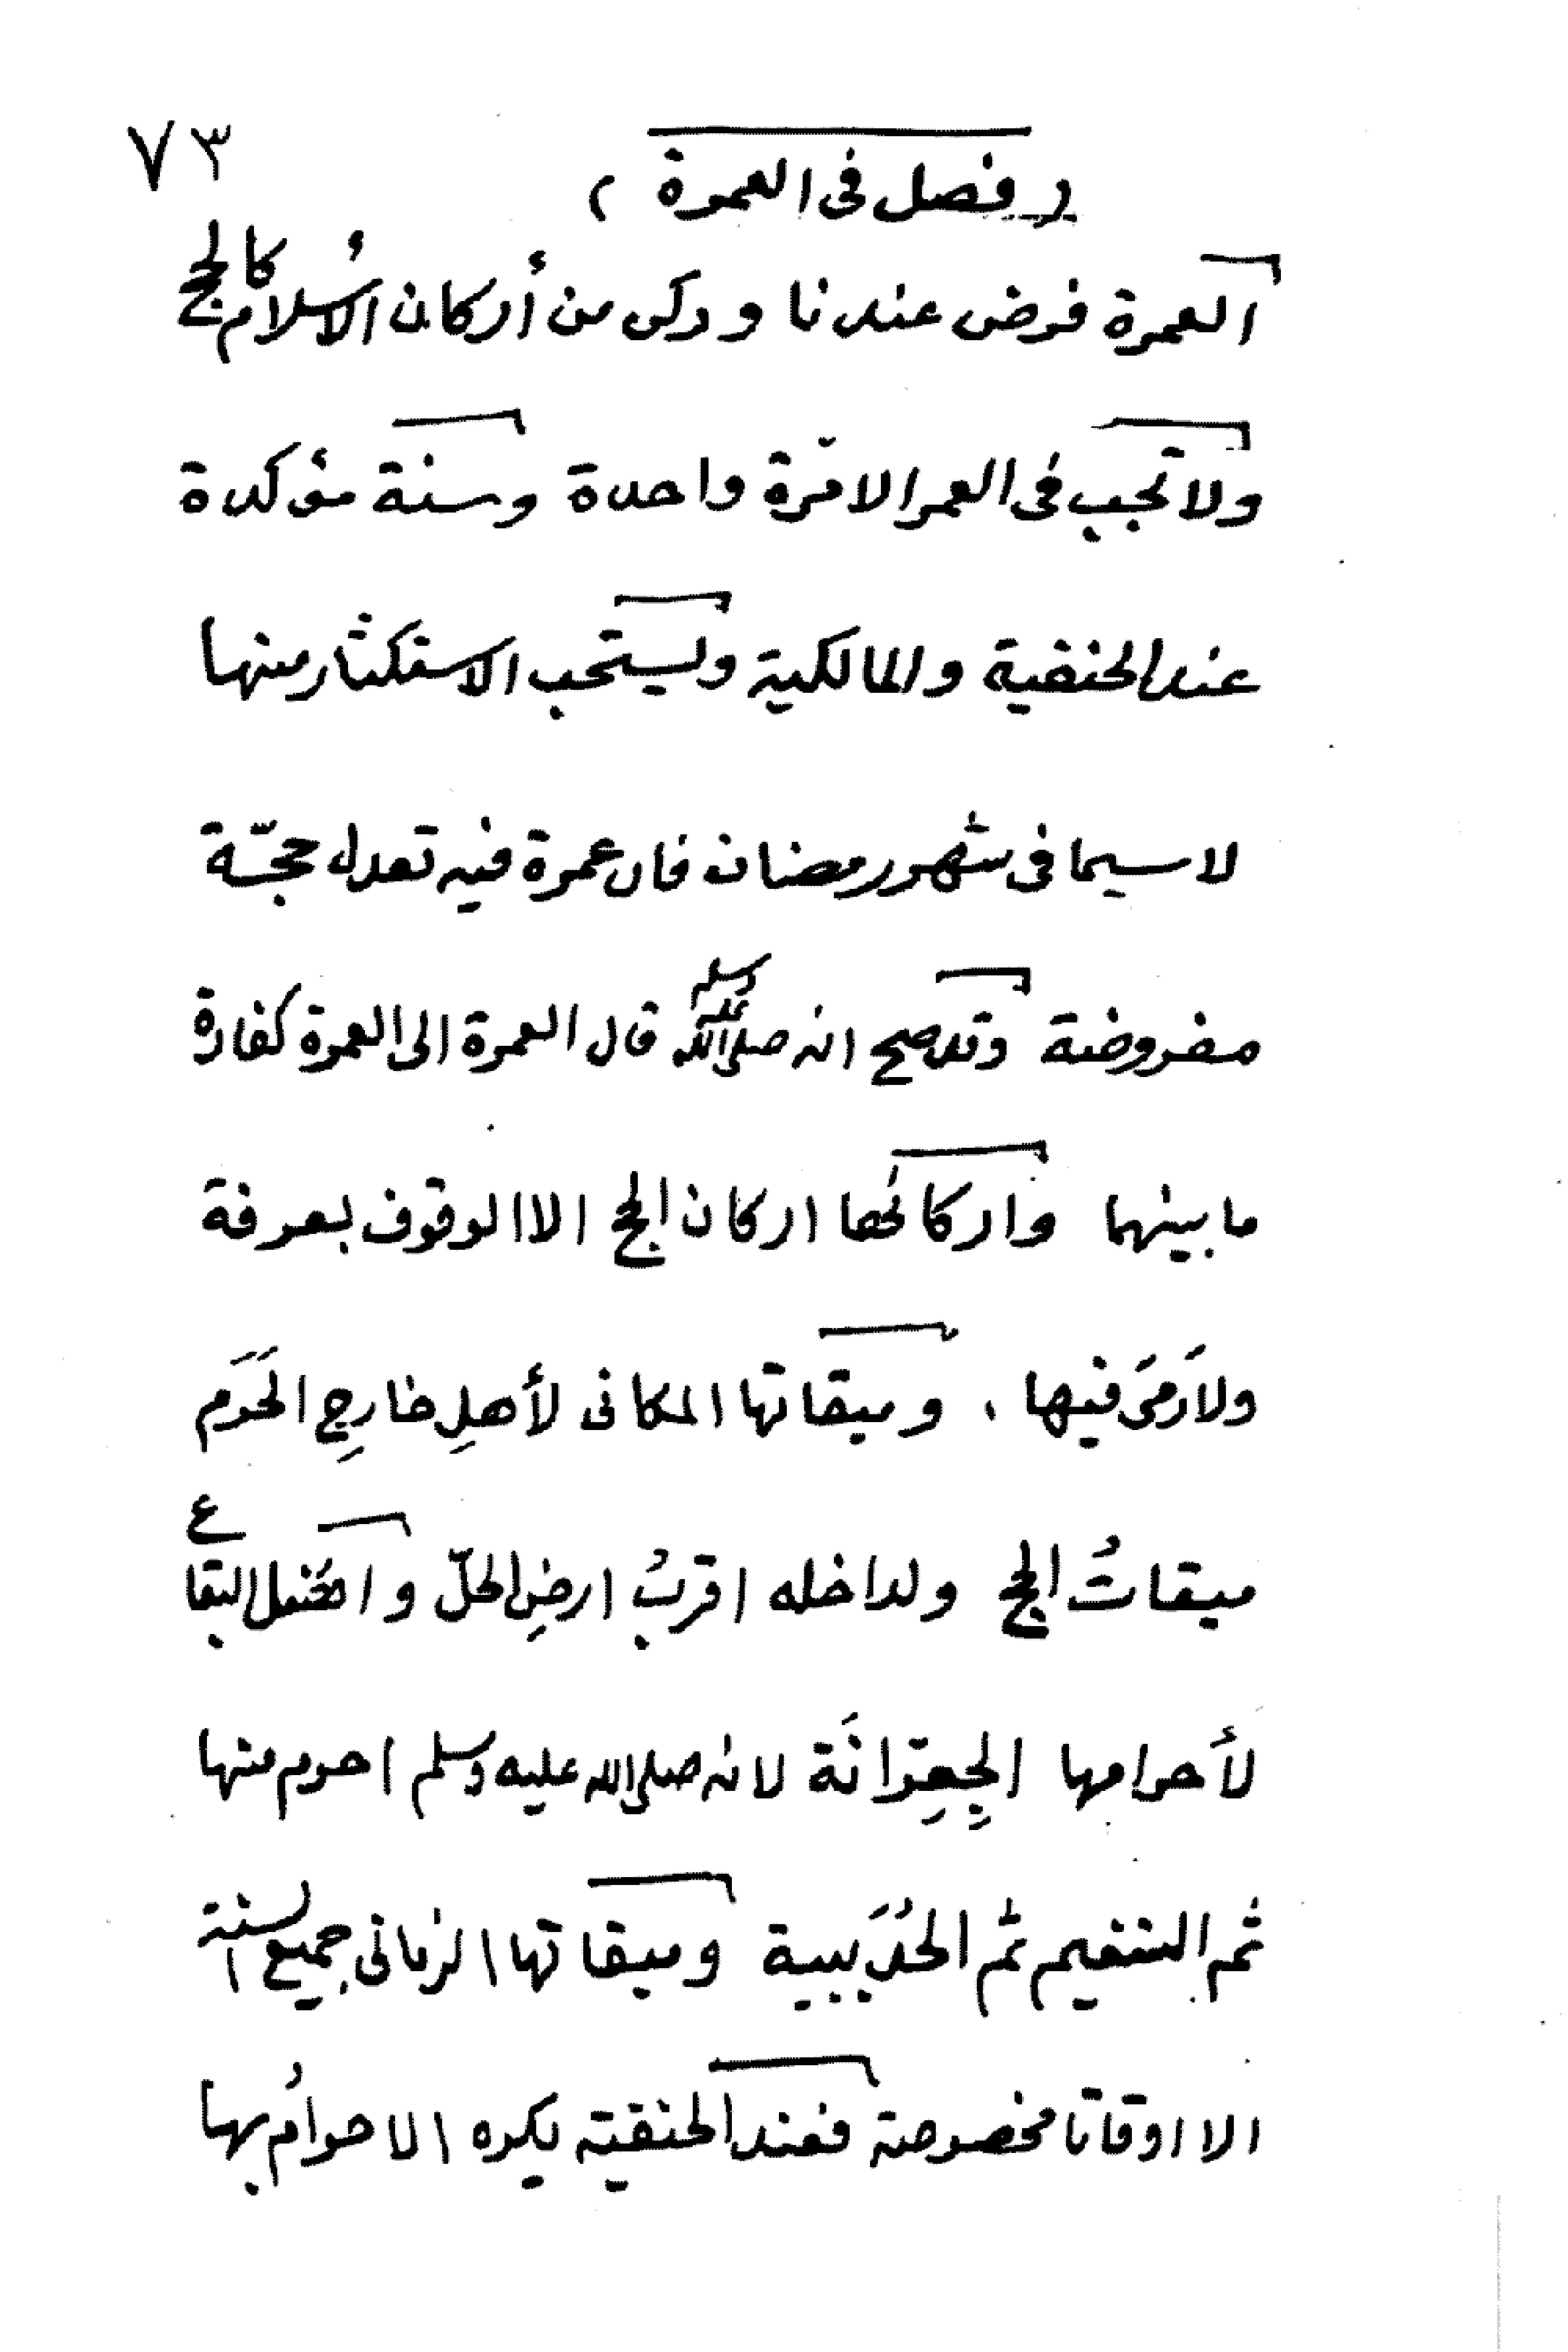 ٧٣
( فصل في العمرة )
العمرة فرض عندنا وركن من أركان الأسلام كالحج
ولا تجب في العمر الا مرّة واحدة وسنة مؤكدة
عند الحنفية والمالكية ويستحب الاستكثار منها
لاسيما في شهر رمضان فان عمرة فيه تعدل حجّة
مفروضة وقد صح انه صلى الله عليه وسلم قال العمرة الى العمرة كفارة
ما بينهما واركانها اركان الحج الا الوقوف بعرفة
ولاَرمىَ فيها ، وميقاتها المكانى لأهلِ خارجِ الحَرَم
ميقاتُ الحج ولداخله اقربُ ارضِ الحلّ وافضل البقاع
لأحرامها الجِعِرّانَة لانه صلى الله عليه وسلم احرم منها
ثم التنعيم ثم الحُدَيبية وميقاتها الزمانى جميع السنة
الا اوقاتا مخصوصة فعند الحنفية يكره الاحرامُ بها